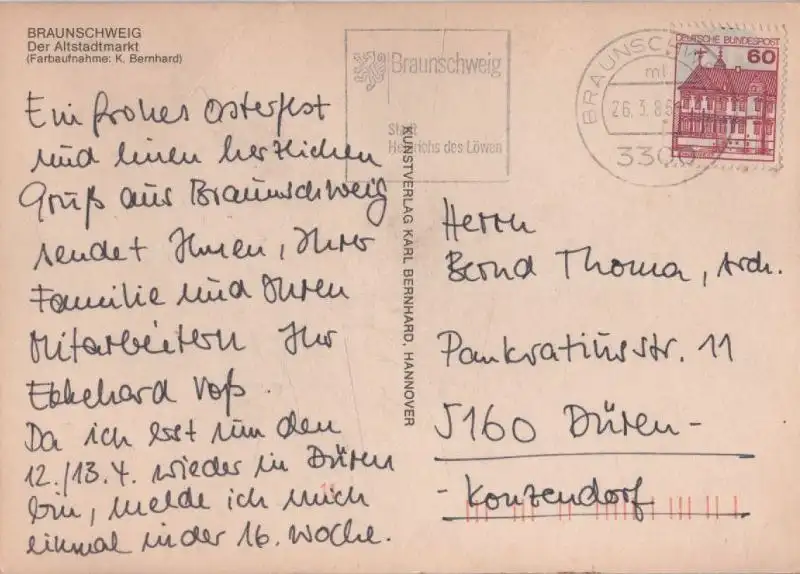 BRAUNSCHWEIG
Der Altstadtmarkt
(Farbaufnahme: K. Bernhard)
Ein frohes Osterfest
und einen herzlichen
Gruß aus Braunschweig
sendet Ihnen, Ihrer
Familie und Ihren
Mitarbeitern Ihr
Ekkehard Voß.
Da ich erst um den
12./13.4. wieder in Düren
bin, melde ich mich
einmal in der 16. Woche.
KUNSTVERLAG KARL BERNHARD, HANNOVER
Braunschweig
Stadt
Heinrichs des Löwen
BRAUNSCHW
26.3.85
3300
DEUTSCHE BUNDESPOST
60
Herrn
Bernd Thoma, Arch.
Pankratiusstr. 11
5160 Düren-
- Konzendorf